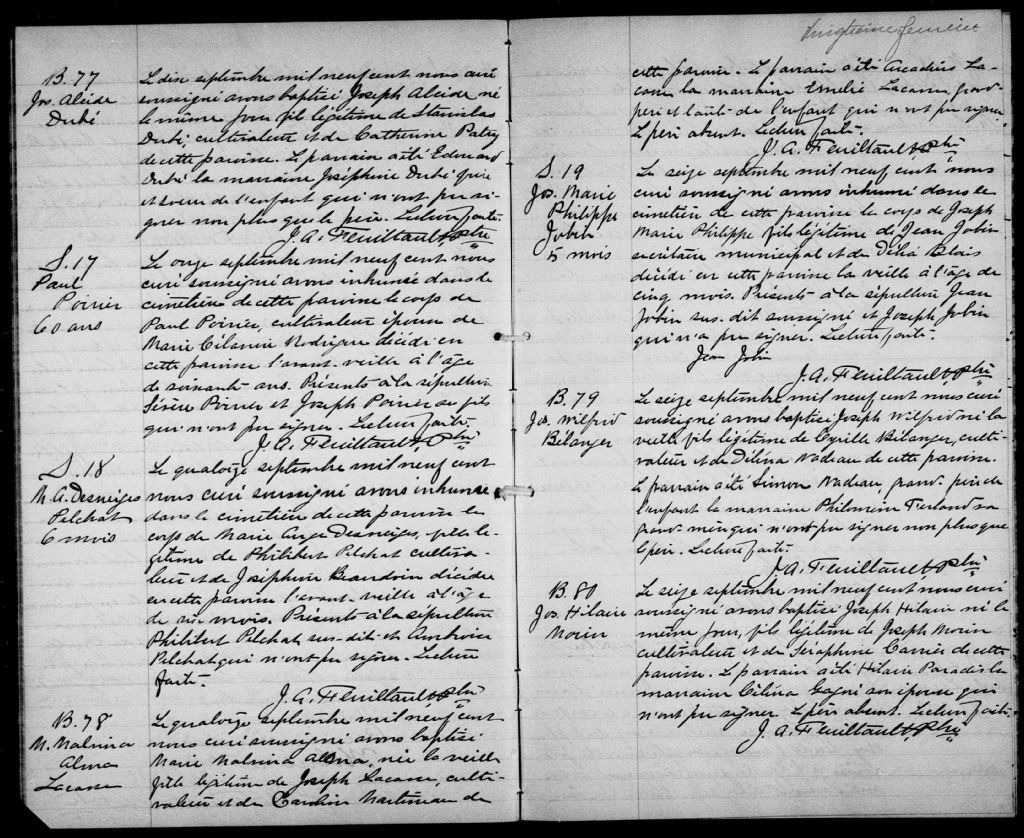 B. 77
Jos. Alcide
Dubé
Le dix septembre mil neuf cent nous curé
soussigné avons baptisé Joseph Alcide né
le même jour fils légitime de Stanislas
Dubé, cultivateur et de Catherine Patry
de cette paroisse. Le parrain a été Edouard
Dubé la marraine Joséphine Dubé frère
et soeur de l'enfant qui n'ont pu si-
gner non plus que le père. Lecture faite.
J. A. Feuiltault, Ptre
S. 17
Paul
Poirier
60 ans
Le onze septembre mil neuf cent nous
curé soussigné avons inhumé dans le
cimetière de cette paroisse le corps de
Paul Poirier, cultivateur époux de
Marie Célanire Rodrigue décédé en
cette paroisse l'avant-veille à l'âge
de soixante ans. Présents à la sépulture
Sévère Poirier et Joseph Poirier ses fils
qui n'ont pu signer. Lecture faite.
J. A. Feuiltault, Ptre
S. 18
M. A. Desneiges
Pelchat
6 mois
Le quatorze septembre mil neuf cent
nous curé soussigné avons inhumé
dans le cimetière de cette paroisse le
corps de Marie Ange Desneiges, fille lé-
gitime de Philibert Pelchat cultiva-
teur et de Joséphine Beaudoin décédée
en cette paroisse l'avant-veille à l'âge
de six mois. Présents à la sépulture
Philibert Pelchat sus-dit et Ambroise
Pelchat qui n'ont pu signer. Lecture
faite.
J. A. Feuiltault, Ptre
B. 78
M. Malvina
Alma
Lacasse
Le quatorze septembre mil neuf cent
nous curé soussigné avons baptisé
Marie Malvina Alma, née la veille
fille légitime de Joseph Lacasse, culti-
vateur et de Caroline Martineau de
cette paroisse. Le parrain a été Arcadius La-
casse la marraine Emélie Lacasse, grand-
père et tante de l'enfant qui n'ont pu signer.
Le père absent. Lecture faite.
J. A. Feuiltault, Ptre
S. 19
Jos. Marie
Philippe
Jobin
5 mois
Le seize septembre mil neuf cent nous
curé soussigné avons inhumé dans le
cimetière de cette paroisse le corps de Joseph
Marie Philippe fils légitime de Jean Jobin
secrétaire municipal et de Délia Blais
décédé en cette paroisse la veille à l'âge de
cinq mois. Présents à la sépulture Jean
Jobin sus-dit soussigné et Joseph Jobin
qui n'a pu signer. Lecture faite.
Jean Jobin
J. A. Feuiltault, Ptre
B. 79
Jos. Wilfrid
Bélanger
Le seize septembre mil neuf cent nous curé
soussigné avons baptisé Joseph Wilfrid né la
veille fils légitime de Cyrille Bélanger, culti-
vateur et de Délina Nadeau de cette paroisse.
Le parrain a été Simon Nadeau, grand-père de
l'enfant la marraine Philomène Ferland sa
grand-mère qui n'ont pu signer non plus que
le père. Lecture faite.
J. A. Feuiltault, Ptre
B. 80
Jos. Hilaire
Morin
Le seize septembre mil neuf cent nous curé
soussigné avons baptisé Joseph Hilaire né le
même jour, fils légitime de Joseph Morin
cultivateur et de Séraphine Carrier de cette
paroisse. Le parrain a été Hilaire Paradis la
marraine Célina Gagné son épouse qui
n'ont pu signer. Le père absent. Lecture faite.
J. A. Feuiltault, Ptre